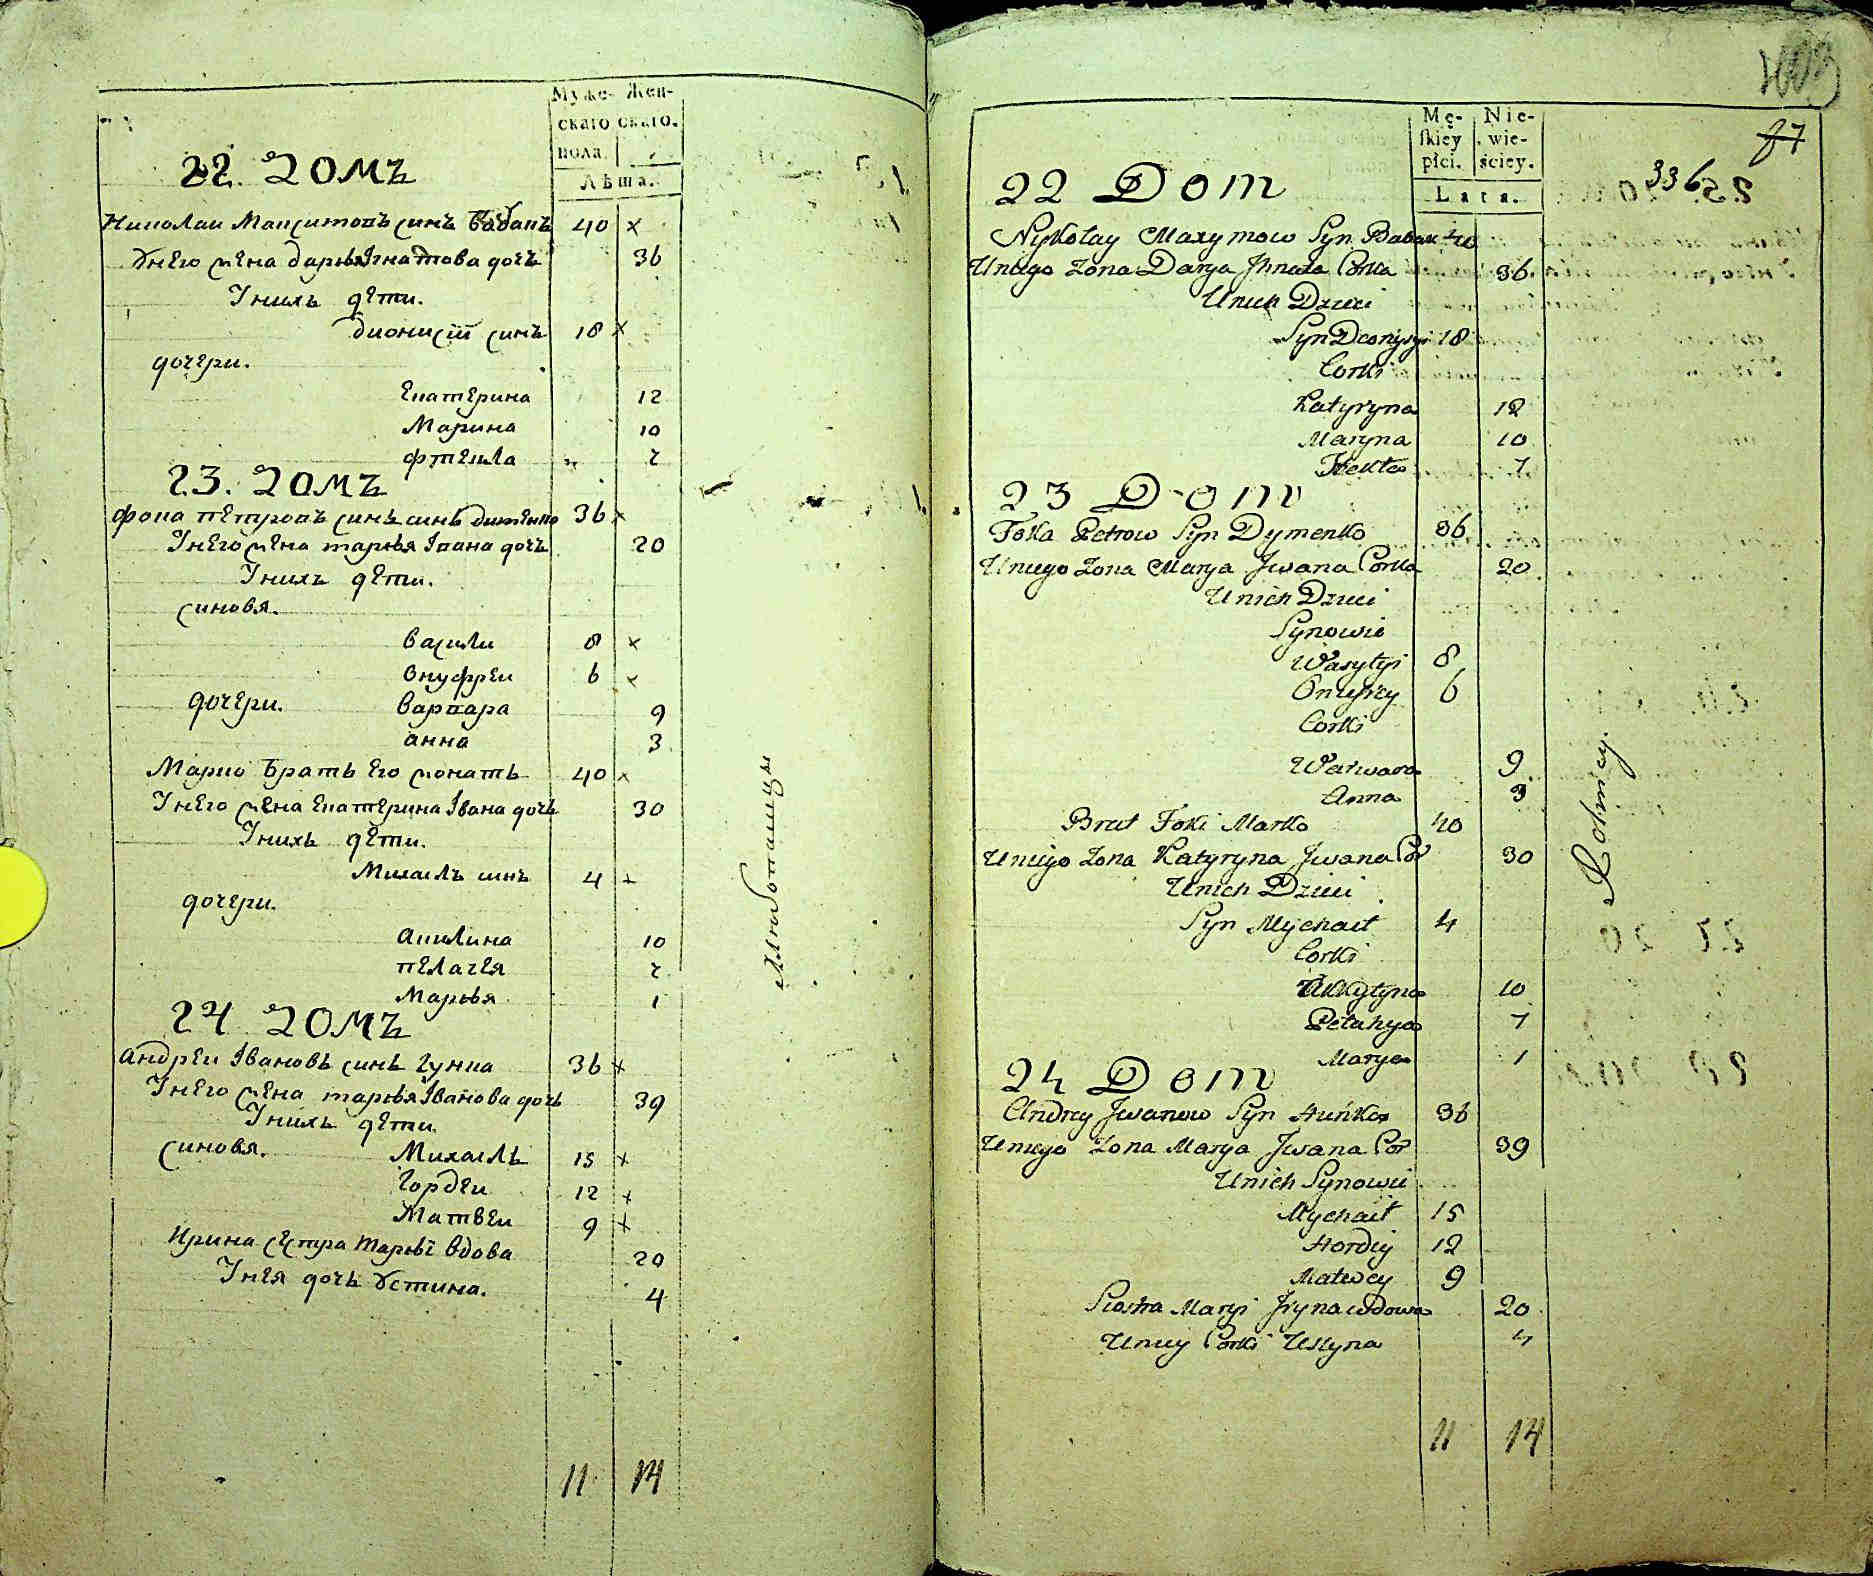 Муже- Жен-
скаго скаго.
пола.
Лѣта.
22. домъ
Николаи Максимовъ синъ Бабакъ 40 x
Унего жена дарья Ігнатова дочь 36
Уних дети.
дионисій синъ 18 x
дочери.
Екатерина 12
Марина 10
Фтекла 7
23. домъ
фока петровъ синъ дименко 36 x
Унего жена марья Івана дочь 20
Унихъ дети.
синовя.
васили 8 x
внуфреи 6 x
дочери. варвара 9
анна 3
Марко братъ его жонатъ 40 x
Унего жена Екатерина Івана дочь 30
Унихъ дети.
Михаилъ синъ 4 x
дочери.
акилина 10
пелагея 7
Марья 1
24 домъ
андреи Івановъ синъ гунка 36 x
Унего жена марья Іванова дочь 39
Унихъ дети.
синовя. Михаилъ 15 x
гордеи 12 x
Матвеи 9 x
Ирина сестра марьі вдова 20
Унея дочь Устина. 4
11 14
Хлибопашцы
Mę- Nie-
skiey wie-
płci. ściey.
Lata.
1003
87
336
22 Dom
Nykołay Maxymow Syn Babak 40
Uniego Zona Darya Jhnata Corka 36
Unich Dzieci
Syn Deonyzyi 18
Corki
Katyryna 12
Maryna 10
Tekla 7
23 Dom
Foka Petrow Syn Dymenko 36
Uniego Zona Marya Jwana Corka 20
Unich Dzieci
Synowie
Wasylyi 8
Onufrey 6
Corki
Warwara 9
Anna 3
Brat Foki Marko 40
Uniego Zona Katyryna Jwana Cor 30
Unich Dzieci
Syn Mychaił 4
Corki
Akylyna 10
Pelahya 7
Marya 1
24 Dom
Andrey Jwanow Syn Huńka 36
Uniego Zona Marya Jwana Cor 39
Unich Synowie
Mychaił 15
Hordiy 12
Matwey 9
Siostra Maryi Jryna wdowa 20
Uniey Corki Ustyna 4
11 14
Rolnicy.